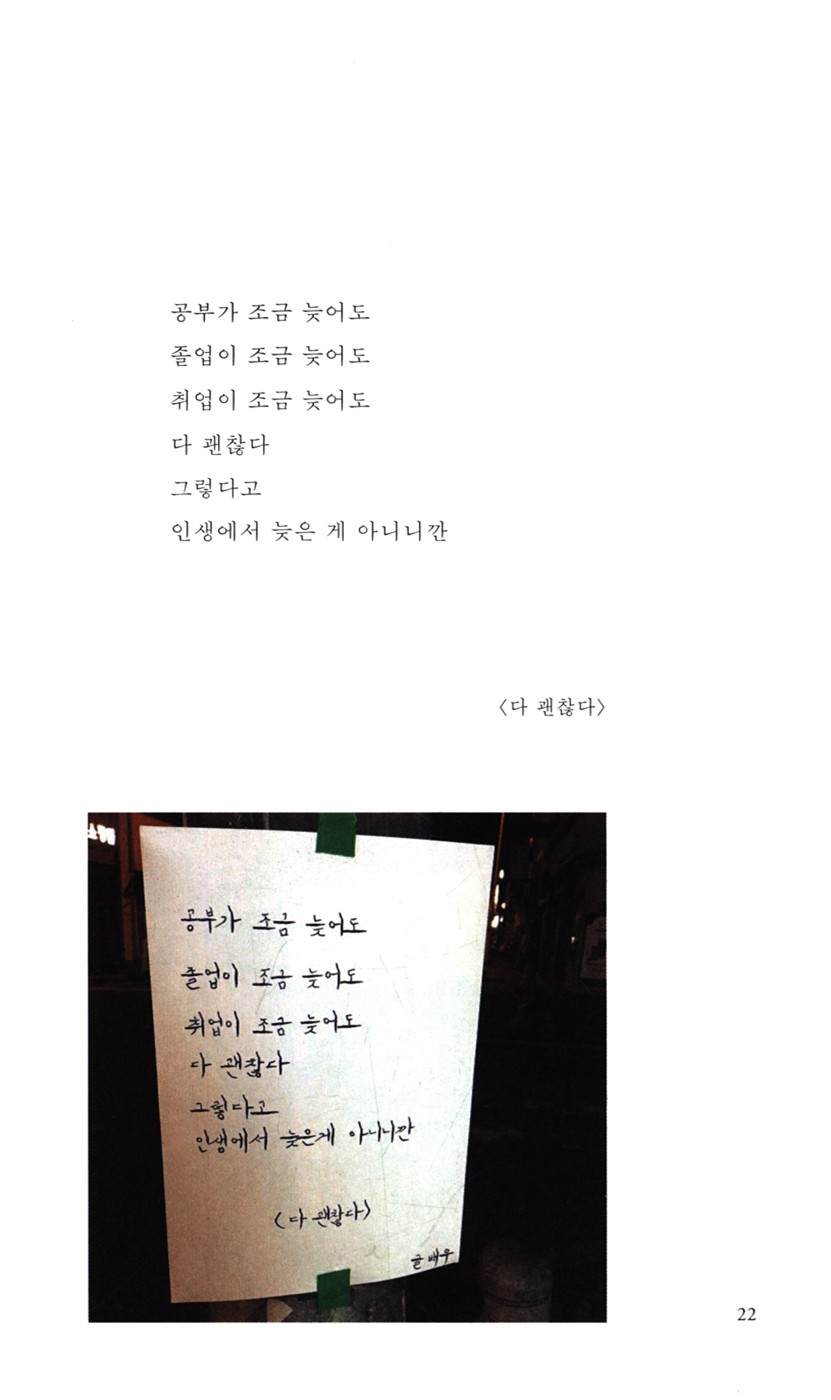 공부가 조금 늦어도
졸업이 조금 늦어도
취업이 조금 늦어도
다 괜찮다
그렇다고
인생에서 늦은 게 아니니깐
〈다 괜찮다〉
공부가 조금 늦어도
졸업이 조금 늦어도
취업이 조금 늦어도
다 괜찮다
그렇다고
인생에서 늦은게 아니니깐
〈다 괜찮다〉
글배우
22